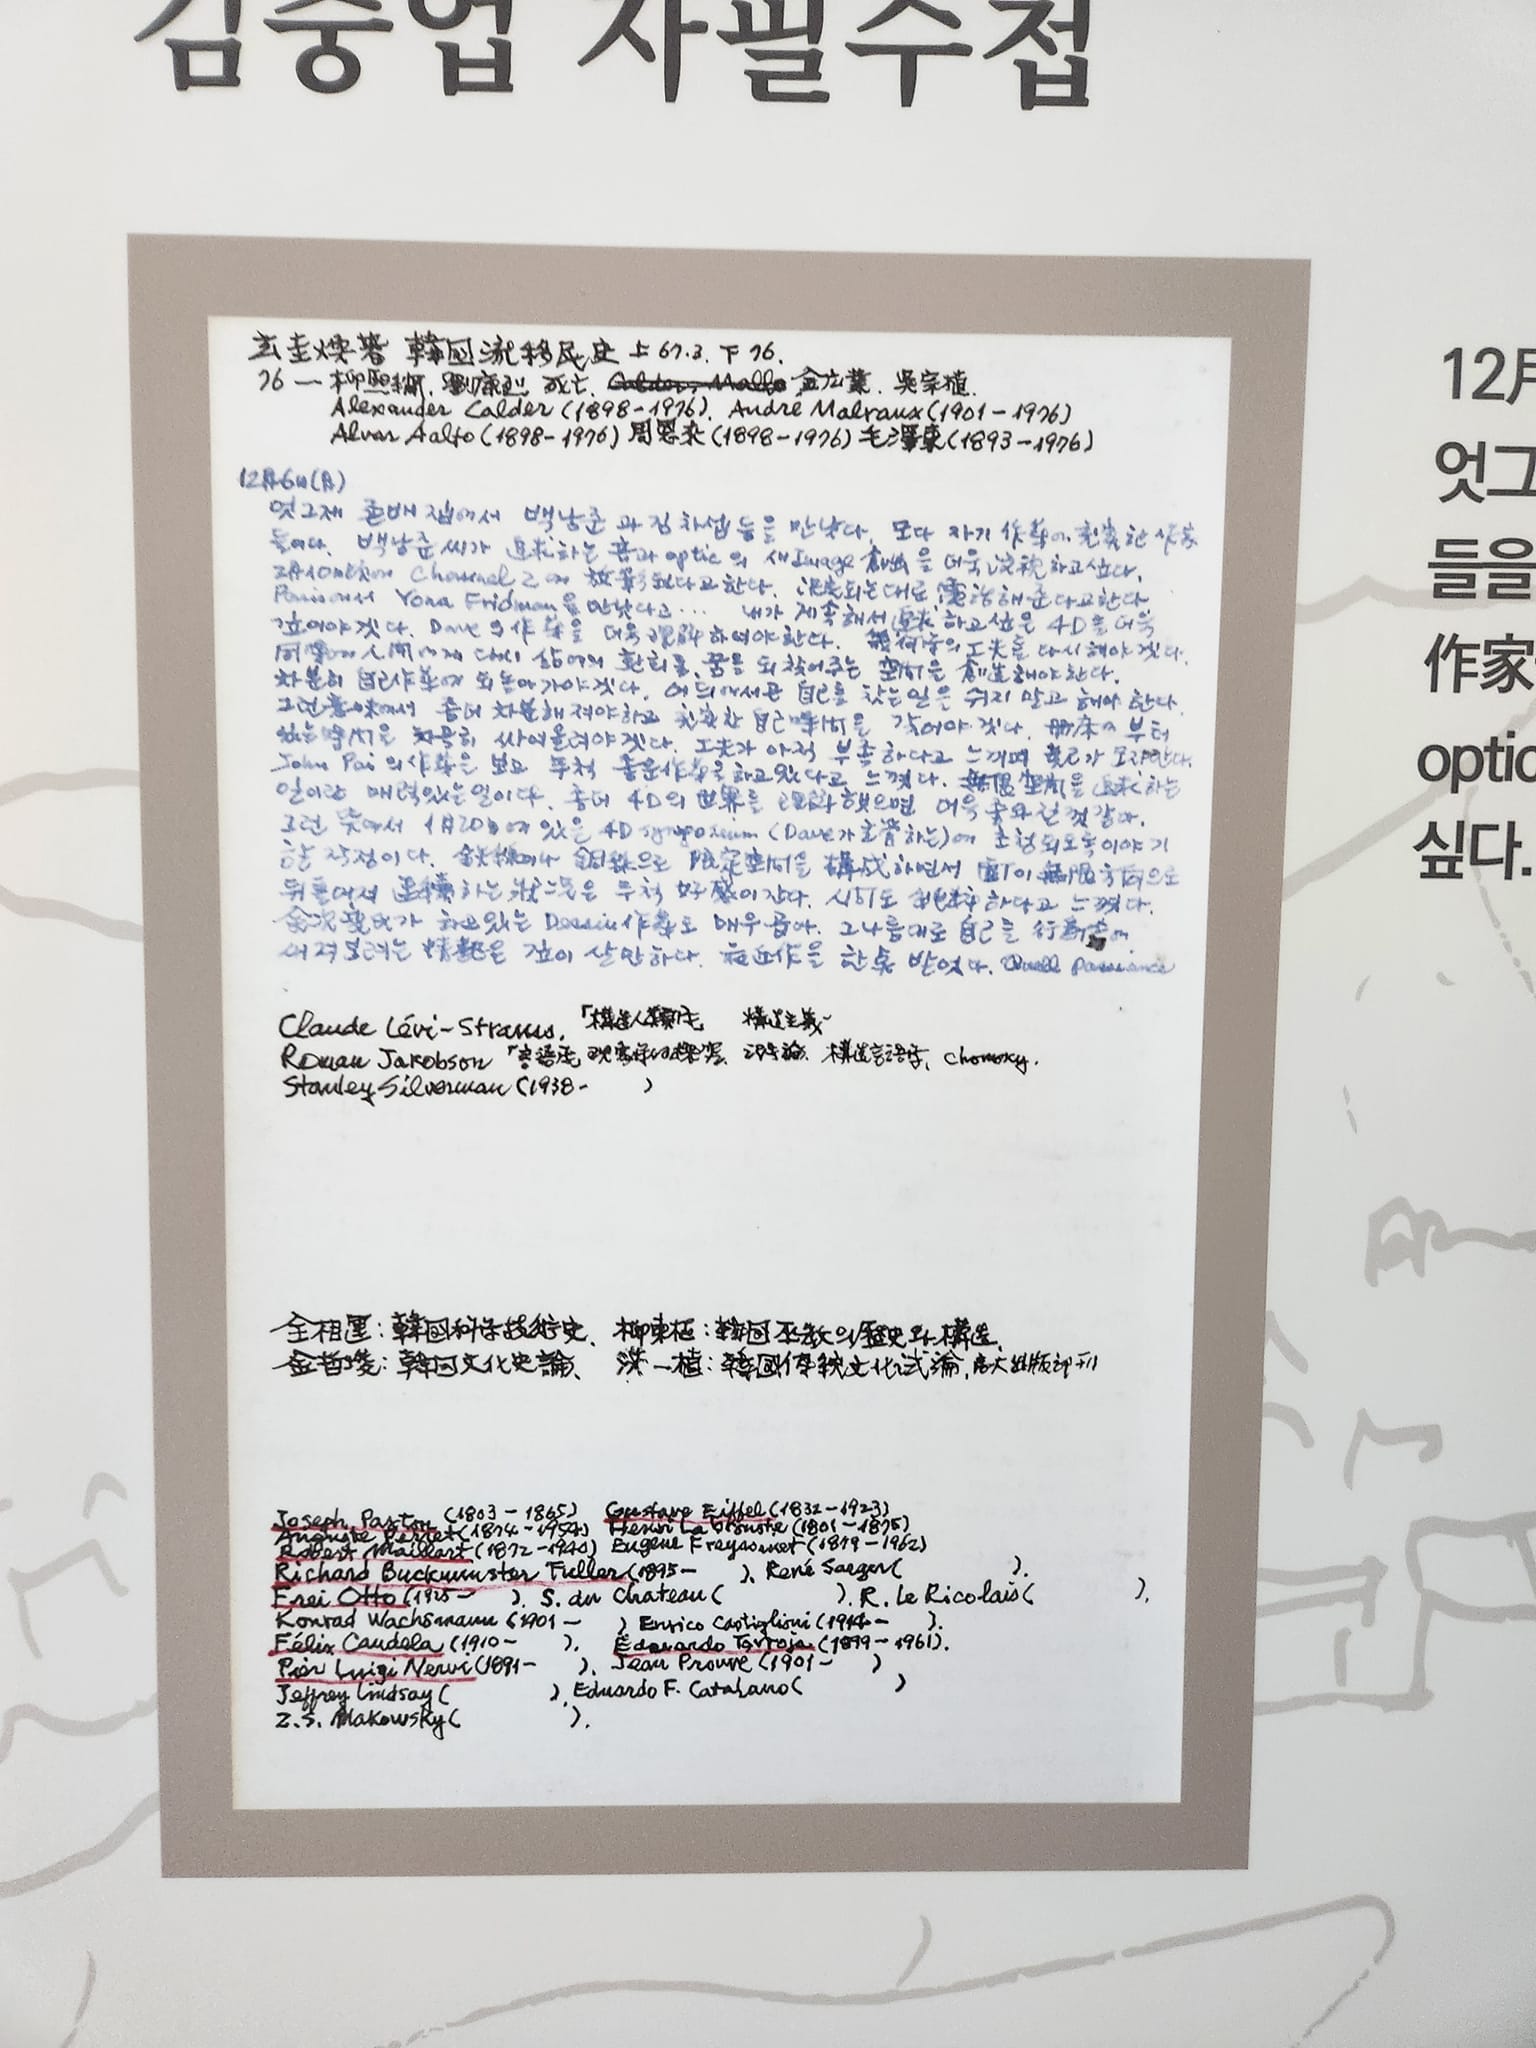 김중업 자필수첩
玄圭煥著 韓國流移民史 上 67.3. 下 76.
76 — 死亡.
Alexander Calder (1898-1976), André Malraux (1901-1976)
Alvar Aalto (1898-1976) 周恩來 (1898-1976) 毛澤東 (1893-1976)
12月6日(月)
엇그제 존배 집에서 백남준과 김차섭 등을 만났다. 모다 자기 作業에 充實한 作家
들이다. 백남준씨가 追求하는 音과 optic의 새 Image 創出을 더욱 하고싶다.
Channel 2에 된다고 한다. 決定되는대로 電話해준다고한다
Paris에서 Yona Fridman을 만났다고... 내가 계속해서 追求하고 싶은 4D를 더욱
깊어야겠다. Dave의 作業을 더욱 理解하여야한다. 幾何学의 工夫를 다시해야겠다.
人間에게 다시 삶에의 환희를, 꿈을 되찾어주는 空間을 創造해야한다.
차분히 自己作業에 되돌아가야겠다. 어드에서곤 自己를 찾는일은 쉬지말고 해야한다.
그런意味에서 좀더 차분해져야하고 充實한 自己時間을 갖어야겠다. 부터
있는 時間을 차곡히 싸여올려야겠다. 工夫가 아직 부족하다고 느끼며 모자란다.
John Pai의 作業을 보고 무척 좋은作業을 하고있다고 느꼈다. 無限空間을 追求하는
일이란 매력있는일이다. 좀더 4D의 世界를 理解했으면 더욱 좋와질것같다.
그런 뜻에서 1月20日에 있을 4D symposium (Dave가 主管하는)에 초청되도록이야기
할 작정이다. 鉄線이나 銅線으로 限定空間을 構成하면서 無限方向으로
뒤틀어서 連續하는 은 무척 好感이간다. 純粹하다고 느꼈다.
金次燮氏가 하고있는 Dessin作業도 매우 곱아. 그나름대로 自己를
새겨보려는 情熱은 깊이 살만하다. 한点 받었다.
Claude Lévi-Strauss, 「構造人類学」 構造主義
Roman Jakobson 「言語学 構造言語学, Chomsky.
Stanley Silverman (1938- )
全相運: 韓國科学技術史, 柳東植: 韓國巫教의 歷史와 構造,
金哲埈: 韓國文化史論, 洪一植: 韓國傳統文化試論, 高大出版部刊
Joseph Paxton (1803-1865) Gustave Eiffel (1832-1923)
Auguste Perret (1874-1954) Henri Labrouste (1801-1875)
Robert Maillart (1872-1940) Eugène Freyssinet (1879-1962)
Richard Buckminster Fuller (1895- ), René Sarger( ).
Frei Otto (1925- ), S. du Chateau( ), R. Le Ricolais( ),
Konrad Wachsmann (1901- ) Enrico Castiglioni (1914- ).
Félix Candela (1910- ), Edouardo Torroja (1899-1961).
Pier Luigi Nervi (1891- ), Jean Prouvé (1901- )
Jeffrey Lindsay( ), Eduardo F. Catalano( )
Z.S. Makowsky( ).
12月
엇그
들을
作家
optic
싶다.